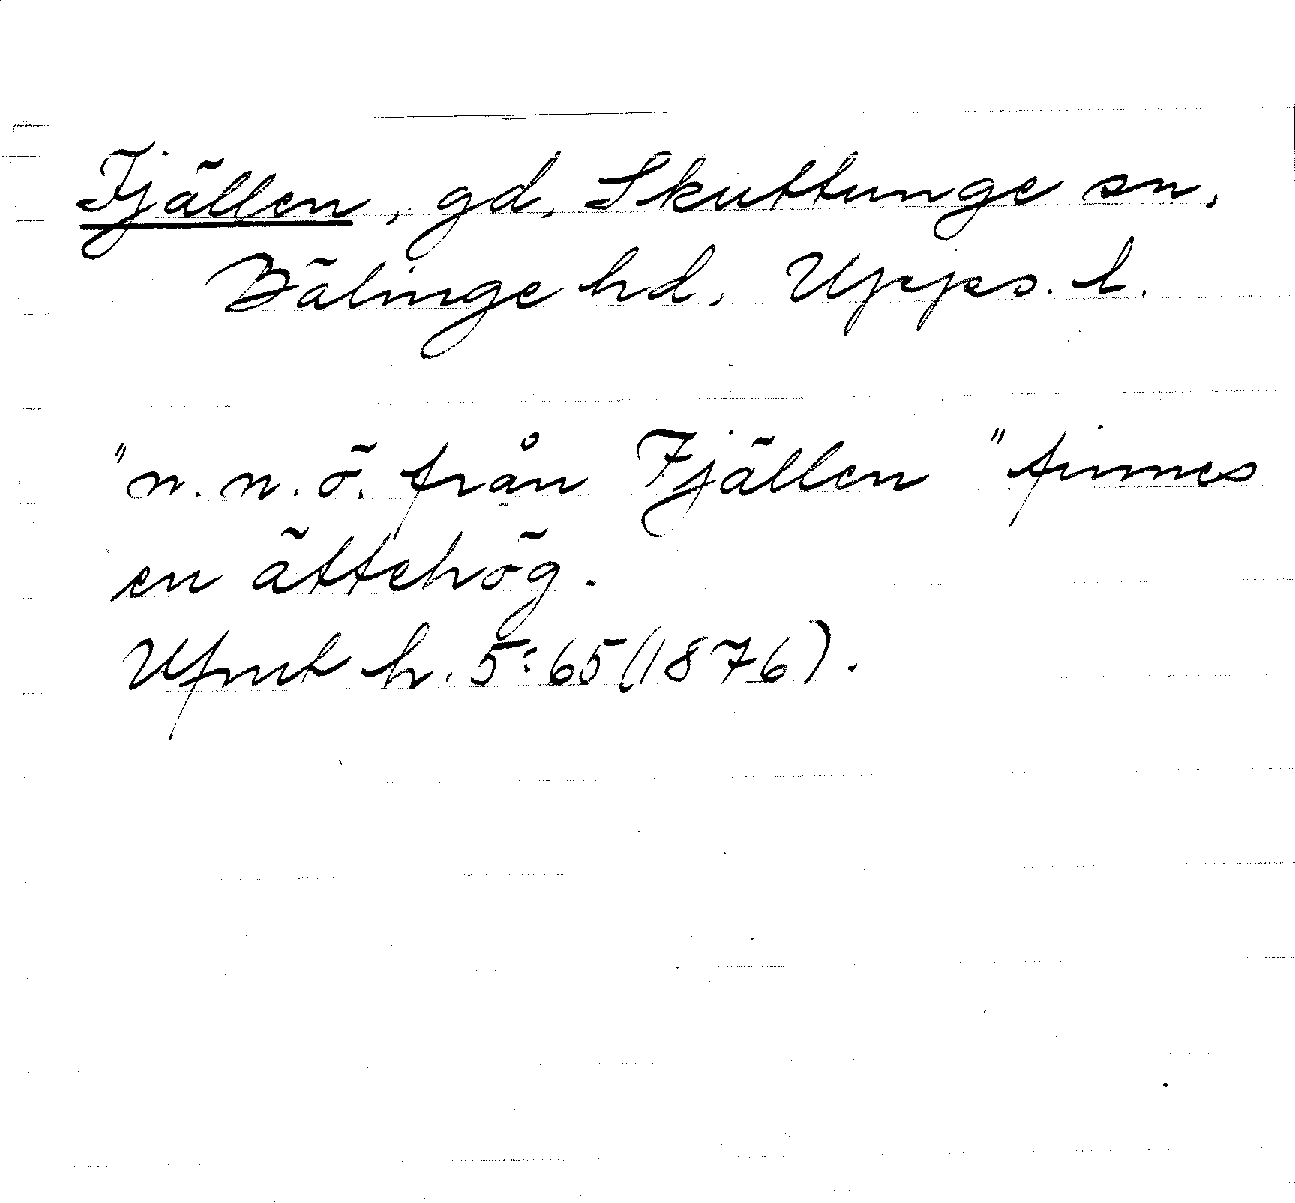 Fjällen, gd, Skuttunge sn,
Bälinge hd, Upps. l.
"n. n. ö. från Fjällen" finnes
en ättehög.
Ufmt h. 5:65 (1876).